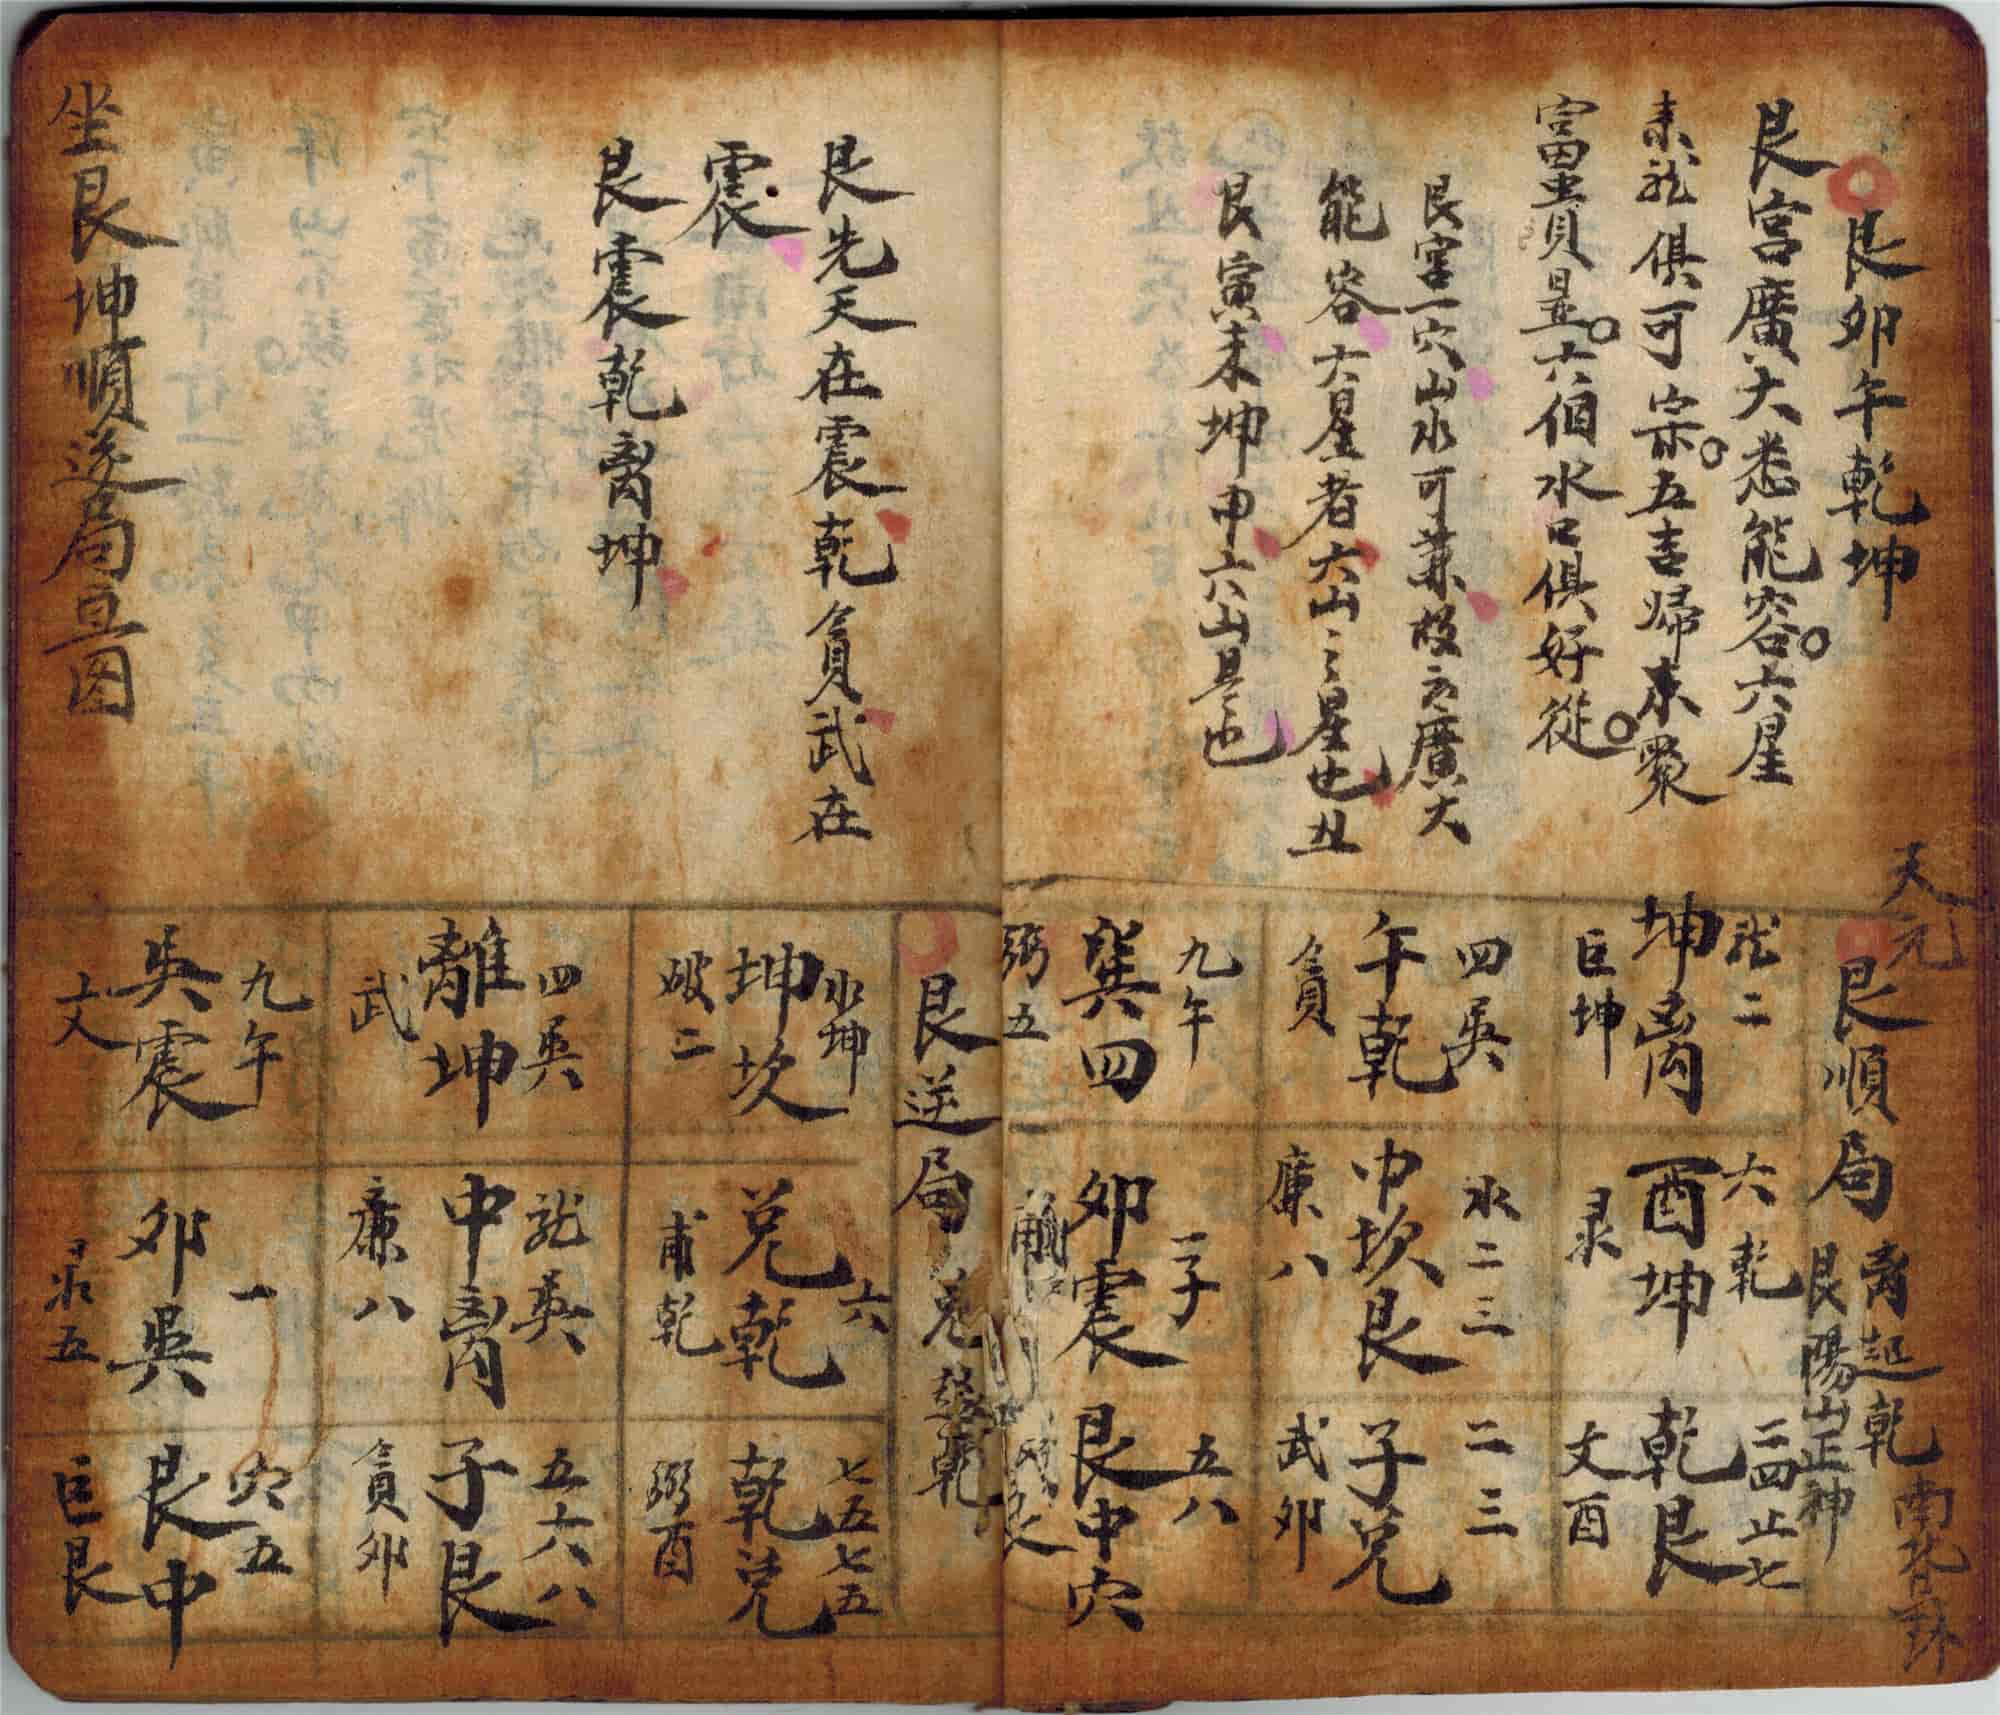 艮卯午乾坤
艮宮廣大悉能容六星
來龍俱可宗五吉歸來聚
富貴是六個水口俱好從
艮宮一穴山水可兼故云廣大
能容六星者六山之星也丑
艮寅未坤申六山是也
天元
艮順局
艮陽山正神
坤离
巨坤
六乾
酉坤
彔
三四止七
乾艮
文酉
四吳
午乾
貪
水二三
中坎艮
廉八
二三
子兌
武卯
九午
巽四
弼五
一子
卯震
五八
艮中六
艮先天在震乾貪武在
震
艮震乾离坤
坐艮坤順逆局豆図
艮逆局
水坤
坤坎
破二
六
兌乾
甫乾
七五七五
乾兌
弼酉
四吳
離坤
武
龙英
中离
廉八
五六八
子艮
貪卯
九午
吳震
文
一
卯吳
彔五
六五
艮中
巨艮